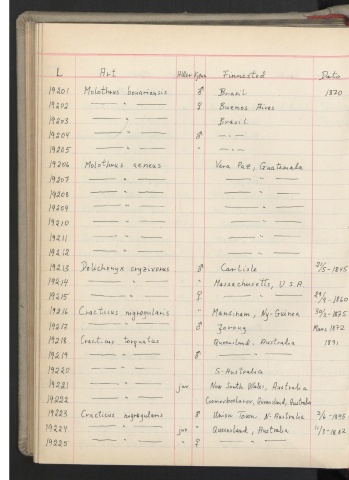 L Art Alder Kjønn Finnested Dato
19201 Molothrus bonariensis ♂ Brasil 1870
19202 — " — ♀ Buenos Aires
19203 — " — Brasil
19204 — " — ♂ — " —
19205 — " — " — " —
19206 Molothrus aeneus Vera Paz, Guatemala
19207 — " — — " —
19208 — " — — " —
19209 — " — — " —
19210 — " — — " —
19211 — " — — " —
19212 — " — — " —
19213 Dolichonyx oryzivorus ♂ Carlisle /5-1845
19214 — " — " Massachusetts, U.S.A.
19215 — " — ♀ — " — /9-1860
19216 Cracticus nigrogularis " Mansinam, Ny-Guinea 30/3-1875
19217 — " — ♂ Zorong Mars 1872
19218 Cracticus torquatus Queensland, Australia 1891
19219 — " — ♂ — " —
19220 — " — S-Australia
19221 — " — juv. New South Wales, Australia
19222 — " — Coomooboolaroo, Queensland, Australia
19223 Cracticus nigrogularis ♂ Union Town, N-Australia 2/6-1895
19224 — " — juv " Queensland, Australia 11/3-1882
19225 — " — " ♀ — " —